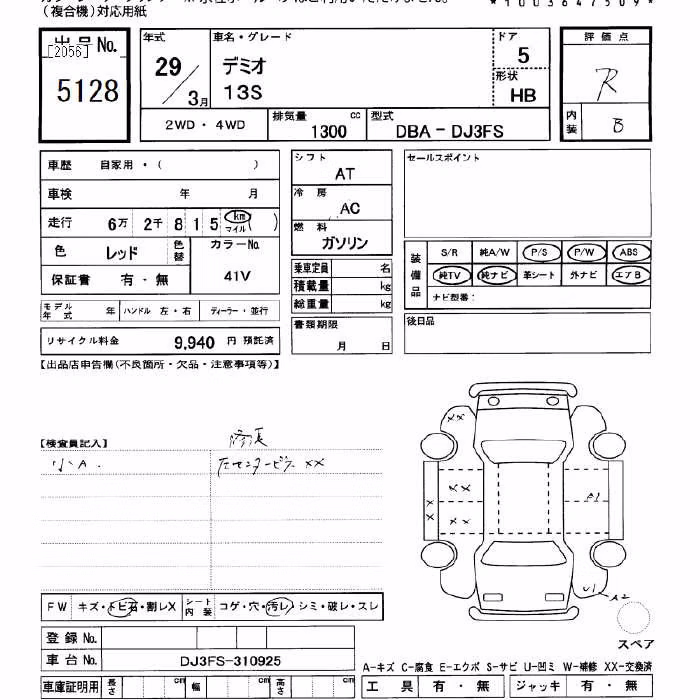 (複合機)対応用紙
*1003647509*
出品No. 年式 車名・グレード ドア 評価点
[2056] 29 デミオ 5 R
5128 3月 13S 形状 HB
2WD・4WD 排気量 cc 1300 型式 DBA-DJ3FS 内装 B
車歴 自家用・( )
車検 年 月
走行 6万 2千 8 1 5 km マイル ( )
色 レッド 色替 カラーNo.
保証書 有・無 41V
モデル年式 年 ハンドル 左・右 ディーラー・並行
リサイクル料金 9,940 円 預託済
シフト AT
冷房 AC
燃料 ガソリン
乗車定員 名
積載量 kg
総重量 kg
書類期限 月 日
セールスポイント
装備品 S/R 純A/W P/S P/W ABS
純TV 純ナビ 革シート 外ナビ エアB
ナビ型番:
後日品
【出品店申告欄(不良箇所・欠品・注意事項等)】
【検査員記入】
小A. 左センターピラー XX
XX
XX
XX
X
X
A1
U1
A2
スペア
FW キズ・トビ石・割レX シート内装 コゲ・穴・汚レ・シミ・破レ・スレ
登録No.
車台No. DJ3FS-310925
A-キズ C-腐食 E-エクボ S-サビ U-凹ミ W-補修 XX-交換済
車庫証明用 長さ cm 幅 cm 高さ cm 工具 有・無 ジャッキ 有・無